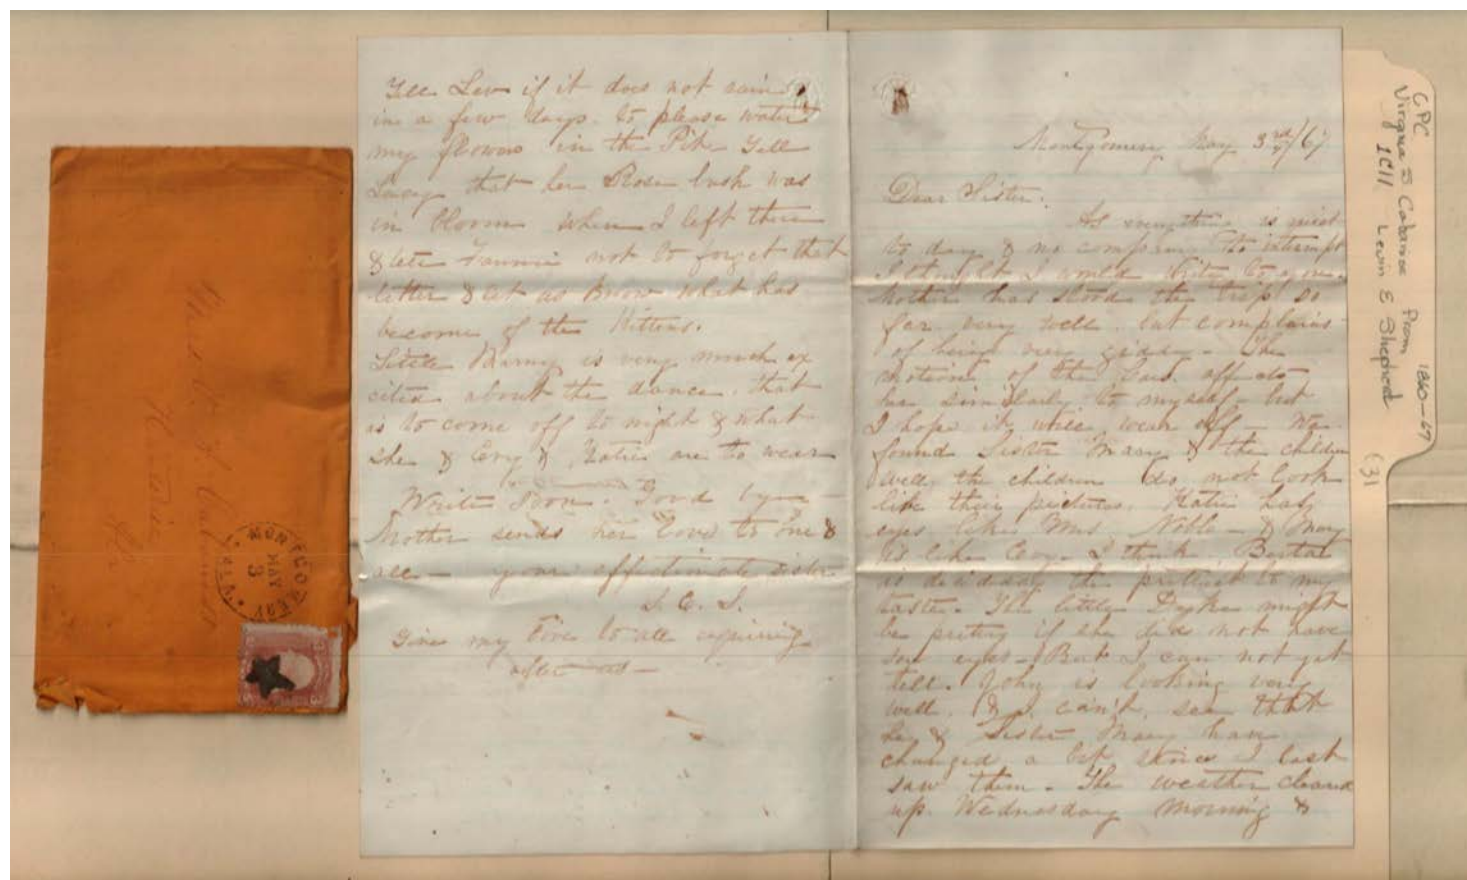 Tell Lev if it does not rain
in a few days to please water
my flowers in the Pit Tell
Lucy that her Rose bush was
in bloom when I left there
& tell Fannie not to forget that
letter & let us know what has
become of the Kittens.
Little Mamy is very much ex
cited about the dance that
is to come off to night & what
she & Evy & Katie are to wear
Write Soon. Good bye
Mother sends her love to one &
all your affectionate sister
S. C. S.
Give my love to all inquiring
after us
Montgomery May 3rd/67
Dear Sister.
As everything is quiet
to day & no company to interrupt
I thought I would write to you.
Mother has stood the trip so
far very well, but complains
of being very giddy. The
motion of the Cars affects
her similarly to myself but
I hope it will wear off. We
found Sister Mary & the children
well, the children do not look
like their pictures. Katie has
eyes like Mrs Noble & Mary
is like Evy. I think
is decidedly the prettiest to my
taste. The little might
be pretty if she did not have
eyes But I can not yet
tell. John is looking very
well, & I can't see that
he & Sister Mary have
changed a bit since I last
saw them. The weather cleared
up Wednesday morning &
MONTGOMERY
ALA.
MAY
3
GPC
Virginia S Cabaniss From 1860-67
1C11 Levin E Shepherd (3)